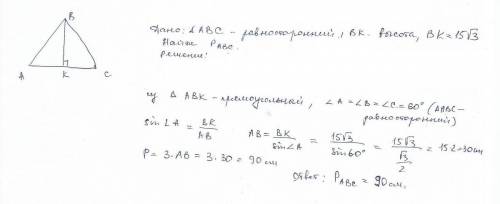 B
A
K
C
Дано: △ABC - равносторонний, BK - высота, BK = 15√3
Найти P ABC.
Решение:
из △ ABK - прямоугольный, ∠A = ∠B = ∠C = 60° (△ABC - равносторонний)
sin∠A = BK/AB   AB = BK/sin∠A = 15√3/sin60° = 15√3/(√3/2) = 15·2 = 30 см
P = 3·AB = 3·30 = 90 см
Ответ: P ABC = 90 см.